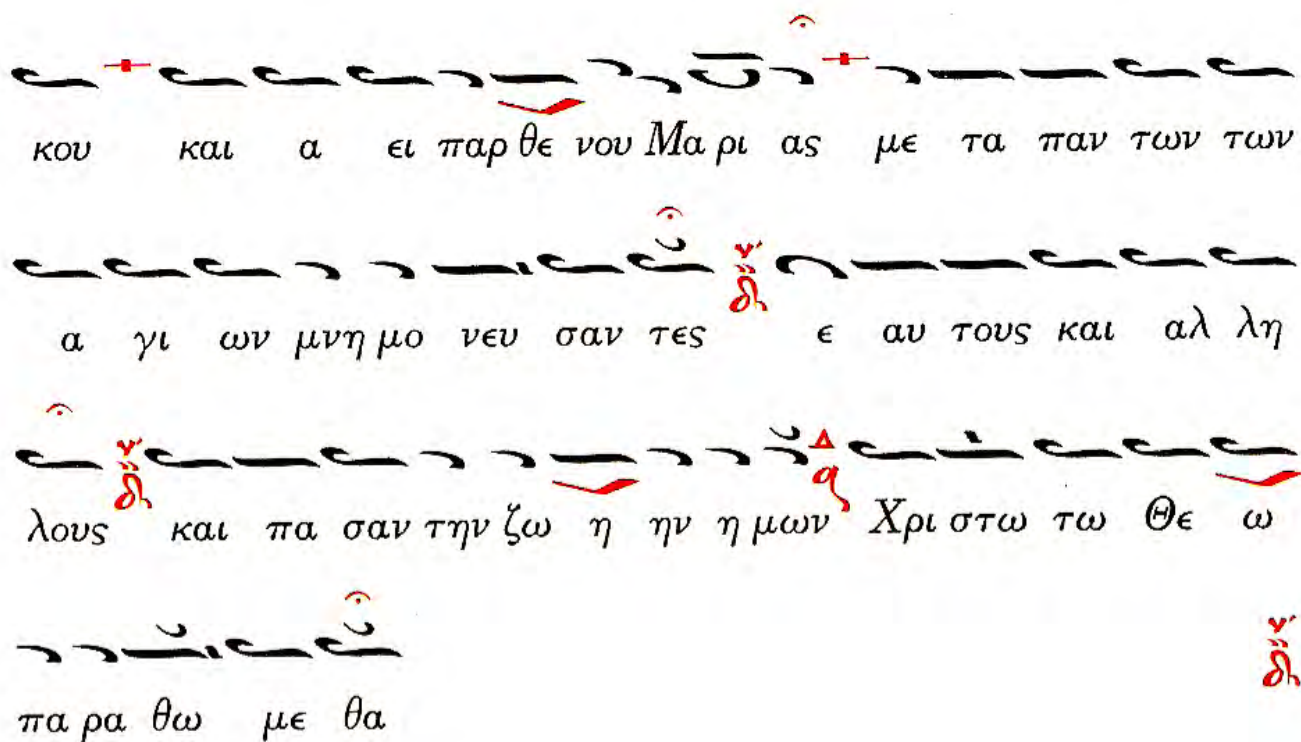 κου και α ει παρ θε νου Μα ρι ας με τα παν των των
α γι ων μνη μο νευ σαν τες ε αυ τους και αλ λη
λους και πα σαν την ζω η ην η μων Χρι στω τω Θε ω
πα ρα θω με θα